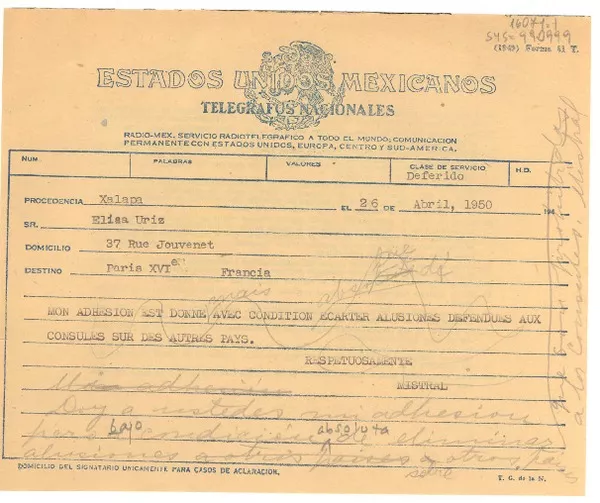 16071-1
sys=990999
(1949) Forma 41 T.
ESTADOS UNIDOS MEXICANOS
TELEGRAFOS NACIONALES
RADIO-MEX. SERVICIO RADIOTELEGRAFICO A TODO EL MUNDO; COMUNICACION
PERMANENTE CON ESTADOS UNIDOS, EUROPA, CENTRO Y SUD-AMERICA.
NUM. PALABRAS VALORES CLASE DE SERVICIO H.D.
Deferido
PROCEDENCIA Xalapa EL 26 DE Abril, 1950 194
SR. Elisa Uriz
DOMICILIO 37 Rue Jouvenet
DESTINO Paris XVIe Francia
que
mais
MON ADHESION EST DONNE AVEC CONDITION ECARTER ALUSIONES DEFENDUES AUX
CONSULES SUR DES AUTRES PAYS.
RESPETUOSAMENTE
MISTRAL
Mi adhesión
Doy a ustedes mi adhesion
pero bajo condición absoluta de eliminar
alusiones a otros países
sobre
a los Consules. Mistral
DOMICILIO DEL SIGNATARIO UNICAMENTE PARA CASOS DE ACLARACION.
T. G. de la N.